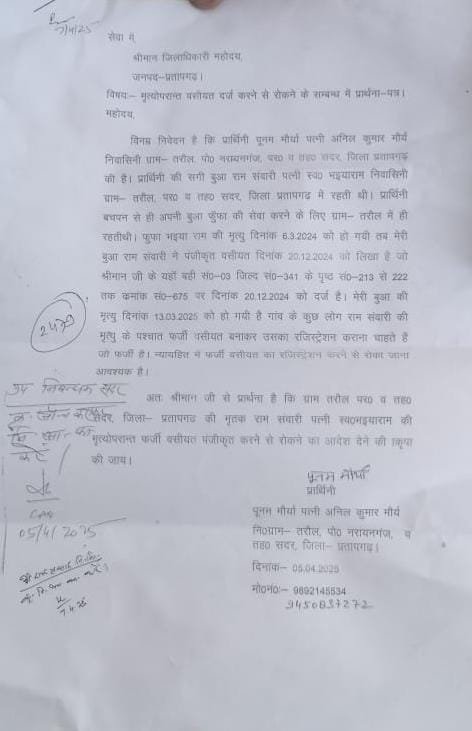 7/4/25
सेवा में,
श्रीमान जिलाधिकारी महोदय,
जनपद–प्रतापगढ़।
विषयः– मृत्योपरान्त वसीयत दर्ज करने से रोकने के सम्बन्ध में प्रार्थना–पत्र।
महोदय,
विनम्र निवेदन है कि प्रार्थिनी पूनम मौर्या पत्नी अनिल कुमार मौर्य
निवासिनी ग्राम– तरौल, पो० नरायनगंज, पर० व तह० सदर, जिला प्रतापगढ़
की है। प्रार्थिनी की सगी बुआ राम संवारी पत्नी स्व० भइयाराम निवासिनी
ग्राम– तरौल, पर० व तह० सदर, जिला प्रतापगढ़ में रहती थी। प्रार्थिनी
बचपन से ही अपनी बुआ फुँफा की सेवा करने के लिए ग्राम– तरौल में ही
रहतीथी। फुफा भइया राम की मृत्यु दिनांक 6.3.2024 को हो गयी तब मेरी
बुआ राम संवारी ने पंजीकृत वसीयत दिनांक 20.12.2024 को लिखा है जो
श्रीमान जी के यहाँ बही सं०–03 जिल्द सं०–341 के पृष्ठ सं०–213 से 222
तक क्रमांक सं०–675 पर दिनांक 20.12.2024 को दर्ज है। मेरी बुआ की
मृत्यु दिनांक 13.03.2025 को हो गयी है गांव के कुछ लोग राम संवारी की
मृत्यु के पश्चात फर्जी वसीयत बनाकर उसका रजिस्ट्रेशन कराना चाहते हैं
जो फर्जी है। न्यायहित में फर्जी वसीयत का रजिस्ट्रेशन करने से रोका जाना
आवश्यक है।
2479
अतः श्रीमान जी से प्रार्थना है कि ग्राम तरौल पर० व तह०
सदर, जिला– प्रतापगढ़ की मृतक राम संवारी पत्नी स्व०भइयाराम की
मृत्योपरान्त फर्जी वसीयत पंजीकृत करने से रोकने का आदेश देने की कृपा
की जाय।
उप निबन्धक सदर
करें
05/4/2025
7.4.25
पूनम मौर्या
प्रार्थिनी
पूनम मौर्या पत्नी अनिल कुमार मौर्य
नि०ग्राम– तरौल, पो० नरायनगंज, व
तह० सदर, जिला– प्रतापगढ़।
दिनांक– 05.04.2025
मो०नं०:– 9892145534
9450837272